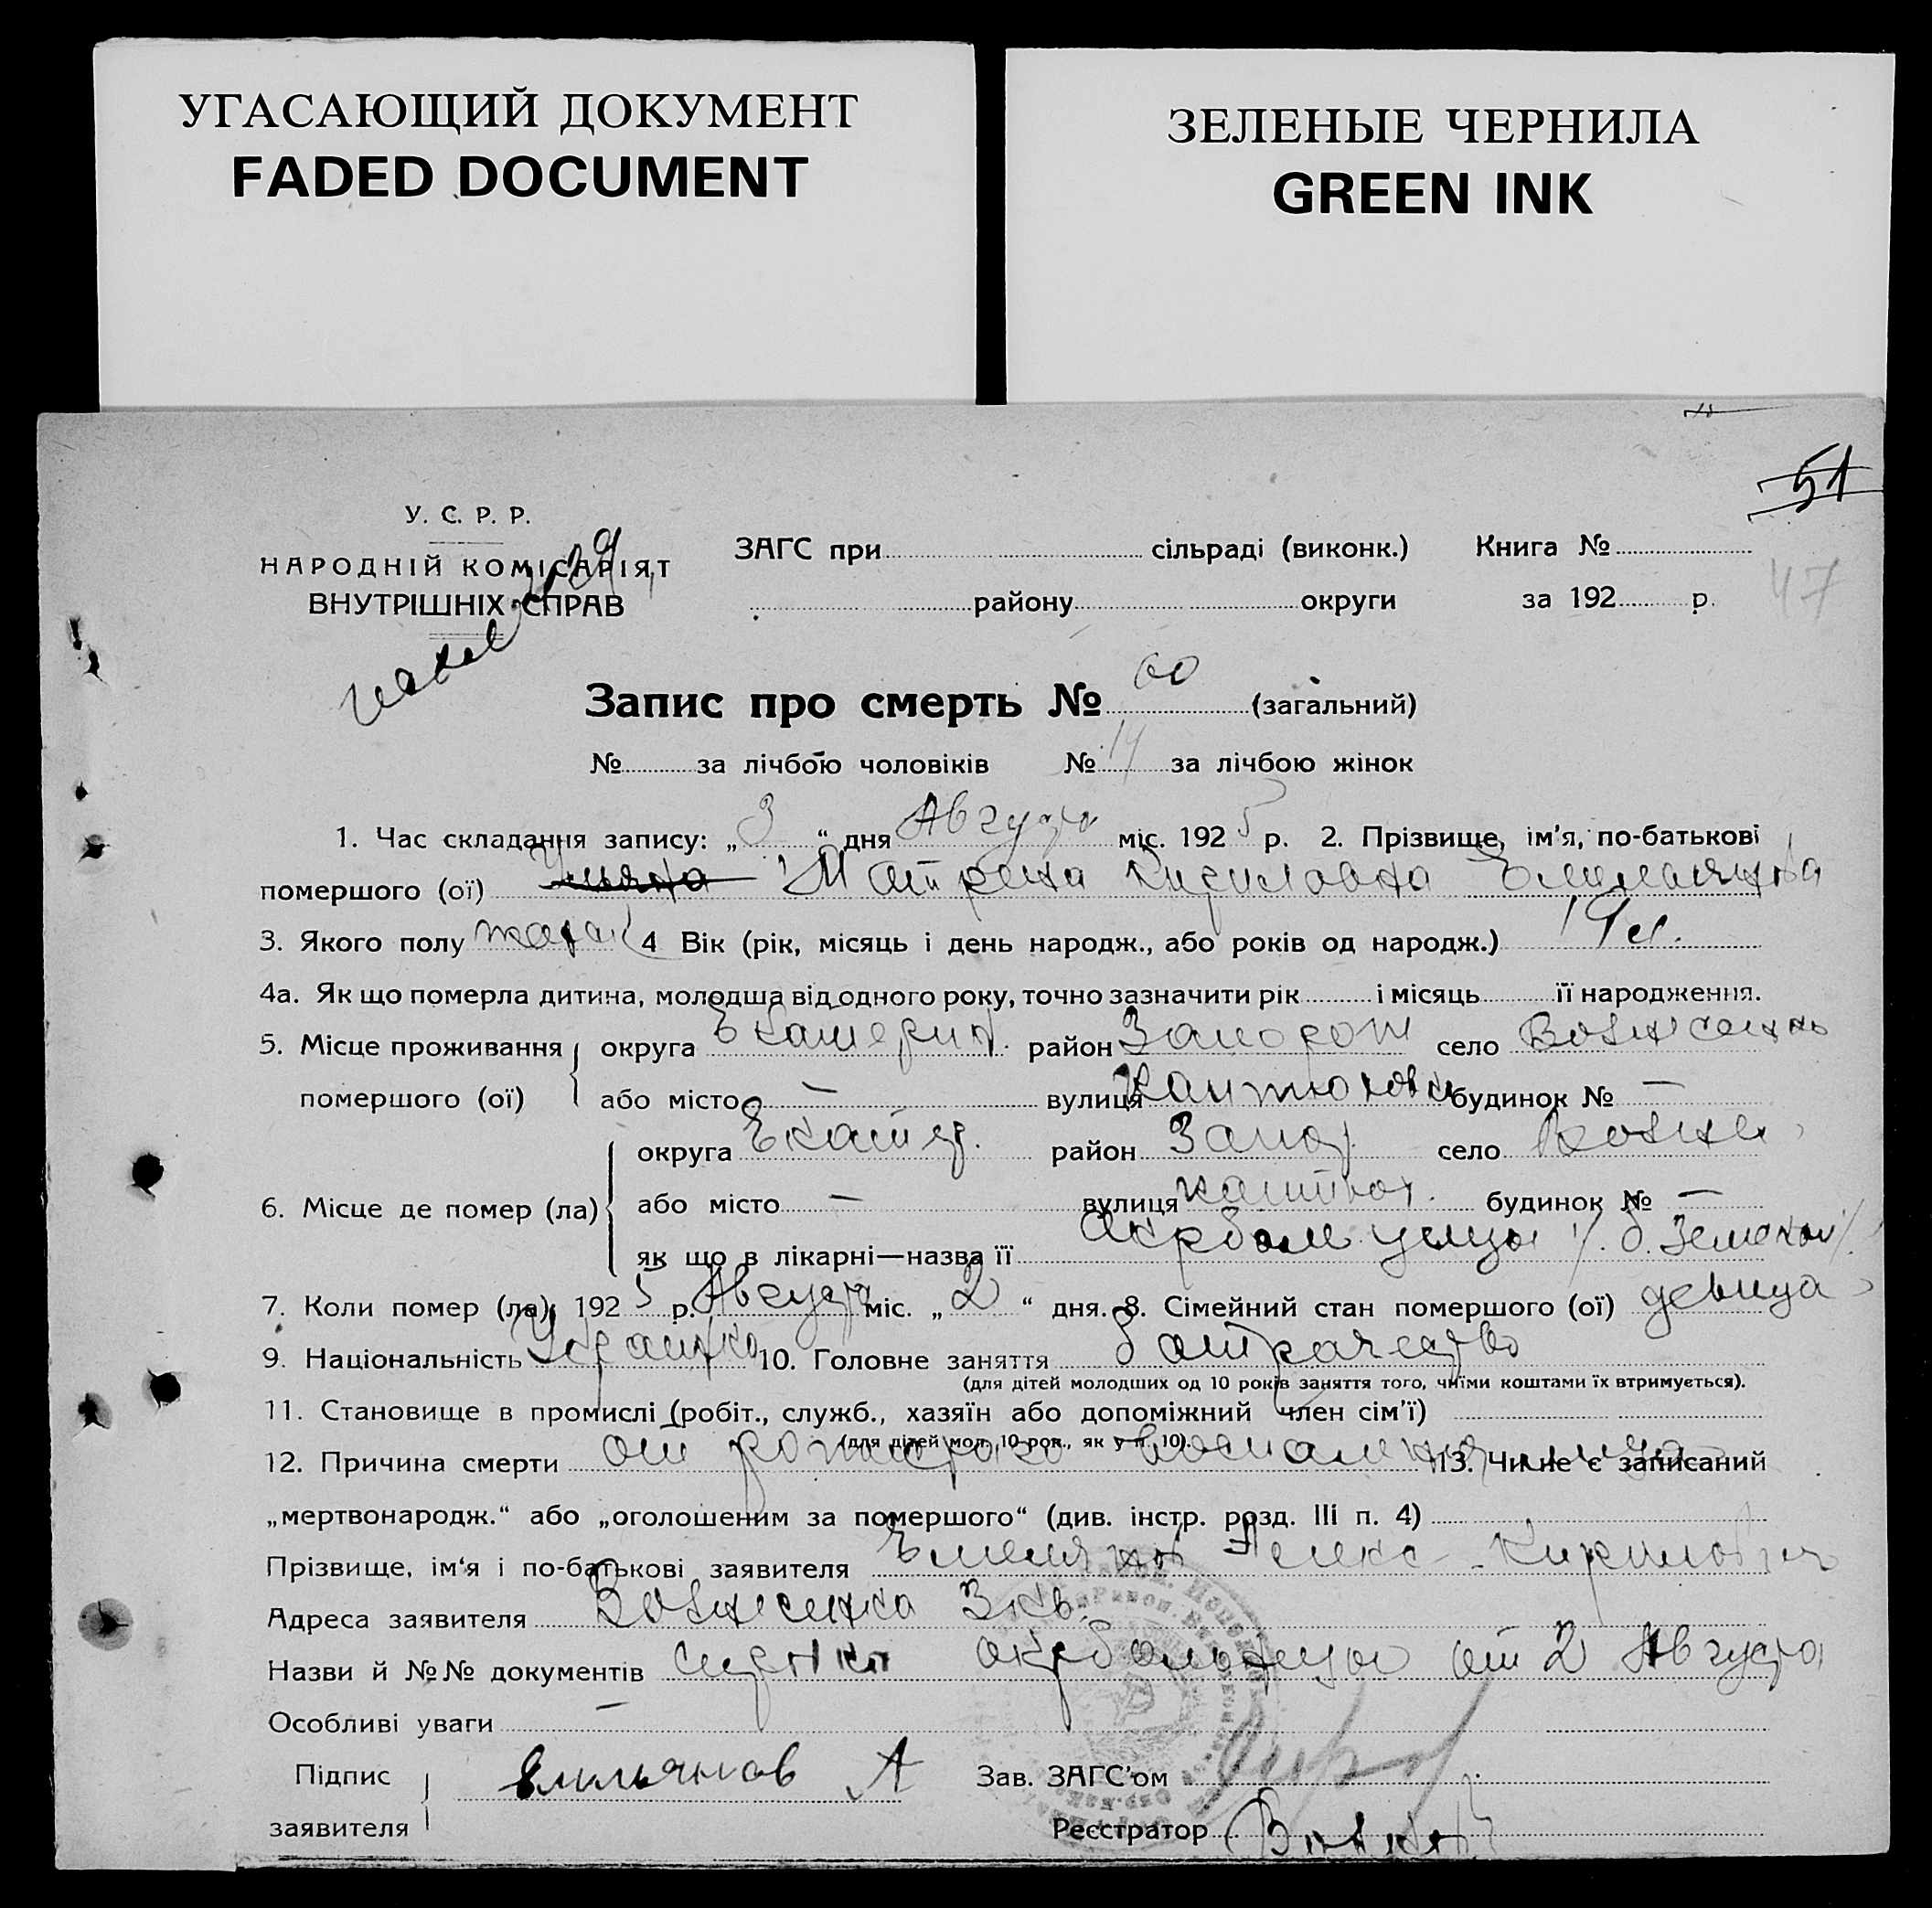 УГАСАЮЩИЙ ДОКУМЕНТ
FADED DOCUMENT
ЗЕЛЕНЫЕ ЧЕРНИЛА
GREEN INK
51
У. С. Р. Р.
НАРОДНІЙ КОМІСАРІЯТ
ВНУТРІШНІХ СПРАВ
ЗАГС при сільраді (виконк.) Книга №
району округи за 192 р. 47
Запис про смерть № 60 (загальний)
№ за лічбою чоловіків № 14 за лічбою жінок
1. Час складання запису: „3“ дня Августа міс. 1925 р. 2. Прізвище, ім'я, по-батькові
помершого (ої) Матрена Кириловна Емельянова
3. Якого полу 4 Вік (рік, місяць і день народж., або років од народж.) 19 л.
4а. Як що померла дитина, молодша від одного року, точно зазначити рік і місяць її народження.
5. Місце проживання помершого (ої) округа Екатерин. район Запорож село Вознесенка
або місто — вулиця будинок № —
6. Місце де помер (ла) округа Екатер. район Запор. село Возне
або місто — вулиця будинок № —
як що в лікарні—назва її Окрбольница /б. Земская/
7. Коли помер (ла): 1925 р. Августа міс. „2“ дня. 8. Сімейний стан помершого (ої) девица
9. Національність Украинка 10. Головне заняття батрачество
(для дітей молодших од 10 років заняття того, чиїми коштами їх втримується).
11. Становище в промислі (робіт., служб., хазяїн або допоміжний член сім'ї)
(для дітей мол. 10 рок., як у п. 10).
12. Причина смерти от воспаления 13. Чи не є записаний
„мертвонародж.“ або „оголошеним за помершого“ (див. інстр. розд. III п. 4)
Прізвище, ім'я і по-батькові заявителя Емелянов Алекс Кирилович
Адреса заявителя Вознесенка 3 кв.
Назви й №№ документів окрбольницы от 2 Августа
Особливі уваги —
Підпис заявителя Емильянов А Зав. ЗАГС'ом
Реєстратор